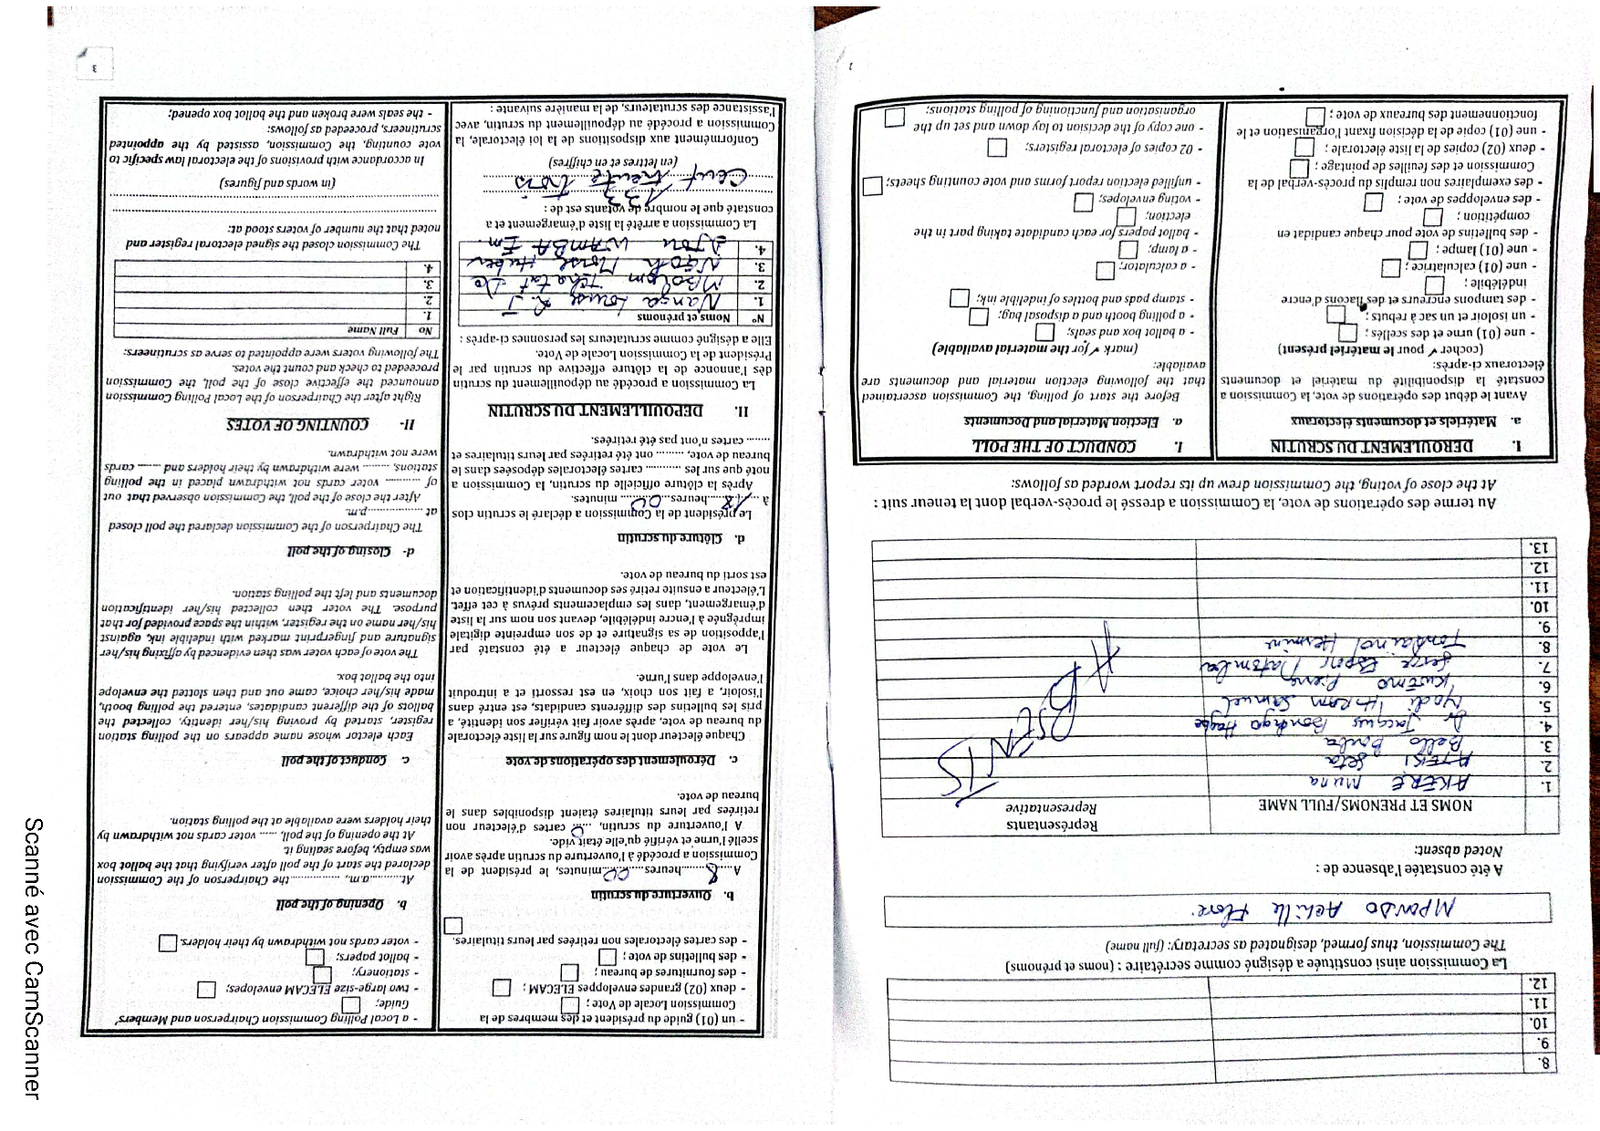 8.
9.
10.
11.
12.
La Commission ainsi constituée a désigné comme secrétaire : (noms et prénoms)
The Commission, thus formed, designated as secretary:: (full name)
MPONDO Achille Flore.
A été constatée l'absence de :
Noted absent:
NOMS ET PRENOMS/FULL NAME
Représentants
Representative
1. AKERE Muna
2. ATEKI Seta
3. Bello Bouba
4. Dr Jacques Bougha Hagbe
5. Hiram Samuel
6. Kwemo Pierre
7. Serge Espoir Matomba
8. Hermine
9.
10.
11.
12.
13.
ABSENTS
Au terme des opérations de vote, la Commission a dressé le procès-verbal dont la teneur suit :
At the close of voting, the Commission drew up its report worded as follows:
I. DEROULEMENT DU SCRUTIN
a. Matériels et documents électoraux
Avant le début des opérations de vote, la Commission a
constaté la disponibilité du matériel et documents
électoraux ci-après:
(cocher ✓ pour le matériel présent)
- une (01) urne et des scellés;
- un isoloir et un sac à rebuts;
- des tampons encreurs et des flacons d'encre
indélébile;
- une (01) calculatrice ;
- une (01) lampe ;
- des bulletins de vote pour chaque candidat en
compétition ;
- des enveloppes de vote ;
- des exemplaires non remplis du procès-verbal de la
Commission et des feuilles de pointage ;
- deux (02) copies de la liste électorale ;
- une (01) copie de la décision fixant l'organisation et le
fonctionnement des bureaux de vote ;
I. CONDUCT OF THE POLL
a. Election Material and Documents
Before the start of polling, the Commission ascertained
that the following election material and documents are
available:
(mark ✓ for the material available)
- a ballot box and seals;
- a polling booth and a disposal bag;
- stamp pads and bottles of indelible ink;
- a calculator;
- a lamp;
- ballot papers for each candidate taking part in the
election;
- voting envelopes;
- unfilled election report forms and vote counting sheets;
- 02 copies of electoral registers;
- one copy of the decision to lay down and set up the
organisation and functioning of polling stations;
2
- un (01) guide du président et des membres de la
Commission Locale de Vote ;
- deux (02) grandes enveloppes ELECAM ;
- des fournitures de bureau ;
- des bulletins de vote ;
- des cartes électorales non retirées par leurs titulaires.
b. Ouverture du scrutin
A....8....heures....00....minutes, le président de la
Commission a procédé à l'ouverture du scrutin après avoir
scellé l'urne et vérifié qu'elle était vide.
A l'ouverture du scrutin, ...0... cartes d'électeur non
retirées par leurs titulaires étaient disponibles dans le
bureau de vote.
c. Déroulement des opérations de vote
Chaque électeur dont le nom figure sur la liste électorale
du bureau de vote, après avoir fait vérifier son identité, a
pris les bulletins des différents candidats, est entré dans
l'isoloir, a fait son choix, en est ressorti et a introduit
l'enveloppe dans l'urne.
Le vote de chaque électeur a été constaté par
l'apposition de sa signature et de son empreinte digitale
imprégnée à l'encre indélébile, devant son nom sur la liste
d'émargement, dans les emplacements prévus à cet effet.
L'électeur a ensuite retiré ses documents d'identification et
est sorti du bureau de vote.
d. Clôture du scrutin
Le président de la Commission a déclaré le scrutin clos
à ...18...heures...00...minutes.
Après la clôture officielle du scrutin, la Commission a
noté que sur les .......... cartes électorales déposées dans le
bureau de vote, ......... ont été retirées par leurs titulaires et
....... cartes n'ont pas été retirées.
II. DEPOUILLEMENT DU SCRUTIN
La Commission a procédé au dépouillement du scrutin
dès l'annonce de la clôture effective du scrutin par le
Président de la Commission Locale de Vote.
Elle a désigné comme scrutateurs les personnes ci-après :
N° Noms et prénoms
1. Nanga Louise R. J
2. Mbolom Tchatat
3. Ngoh Morse Huber
4. Djou WAMBA Em
La Commission a arrêté la liste d'émargement et a
constaté que le nombre de votants est de :
133
Cent trente trois
(en lettres et en chiffres)
Conformément aux dispositions de la loi électorale, la
Commission a procédé au dépouillement du scrutin, avec
l'assistance des scrutateurs, de la manière suivante :
- a Local Polling Commission Chairperson and Members'
Guide;
- two large-size ELECAM envelopes;
- stationery;
- ballot papers;
- voter cards not withdrawn by their holders.
b. Opening of the poll
At.........a.m., .............the Chairperson of the Commission
declared the start of the poll after verifying that the ballot box
was empty, before sealing it.
At the opening of the poll, ...... voter cards not withdrawn by
their holders were available at the polling station.
c. Conduct of the poll
Each elector whose name appears on the polling station
register, started by proving his/her identity, collected the
ballots of the different candidates, entered the polling booth,
made his/her choice, came out and then slotted the envelope
into the ballot box.
The vote of each voter was then evidenced by affixing his/her
signature and fingerprint marked with indelible ink, against
his/her name on the register, within the space provided for that
purpose. The voter then collected his/her identification
documents and left the polling station.
d- Closing of the poll
The Chairperson of the Commission declared the poll closed
at ..................p.m.
After the close of the poll, the Commission observed that out
of .......... voter cards not withdrawn placed in the polling
stations, ......... were withdrawn by their holders and ...... cards
were not withdrawn.
II- COUNTING OF VOTES
Right after the Chairperson of the Local Polling Commission
announced the effective close of the poll, the Commission
proceeded to check and count the votes.
The following voters were appointed to serve as scrutineers:
No Full Name
1.
2.
3.
4.
The Commission closed the signed electoral register and
noted that the number of voters stood at:
(in words and figures)
In accordance with provisions of the electoral law specific to
vote counting, the Commission, assisted by the appointed
scrutineers, proceeded as follows:
- the seals were broken and the ballot box opened;
3
Scanné avec CamScanner